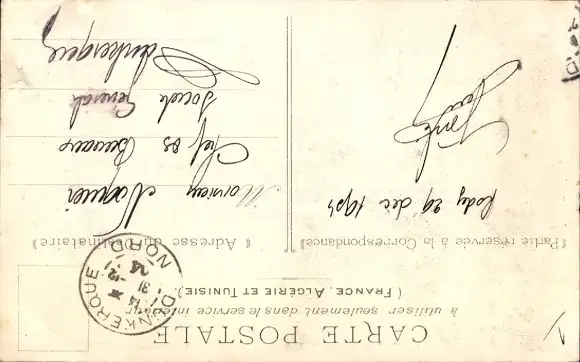 CARTE POSTALE
à utiliser seulement dans le service intérieur
(FRANCE, ALGÉRIE ET TUNISIE)
(Partie réservée à la Correspondance)
(Adresse du Destinataire)
29 déc
Monsieur
Chef des Bureaux
Société Générale
Dunkerque
DUNKERQUE
14
31 -12
NORD